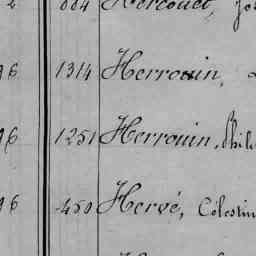 884 Hercouet,
96 1314 Herrouin,
96 1251 Herrouin, Phil
96 450 Hervé, Célestin